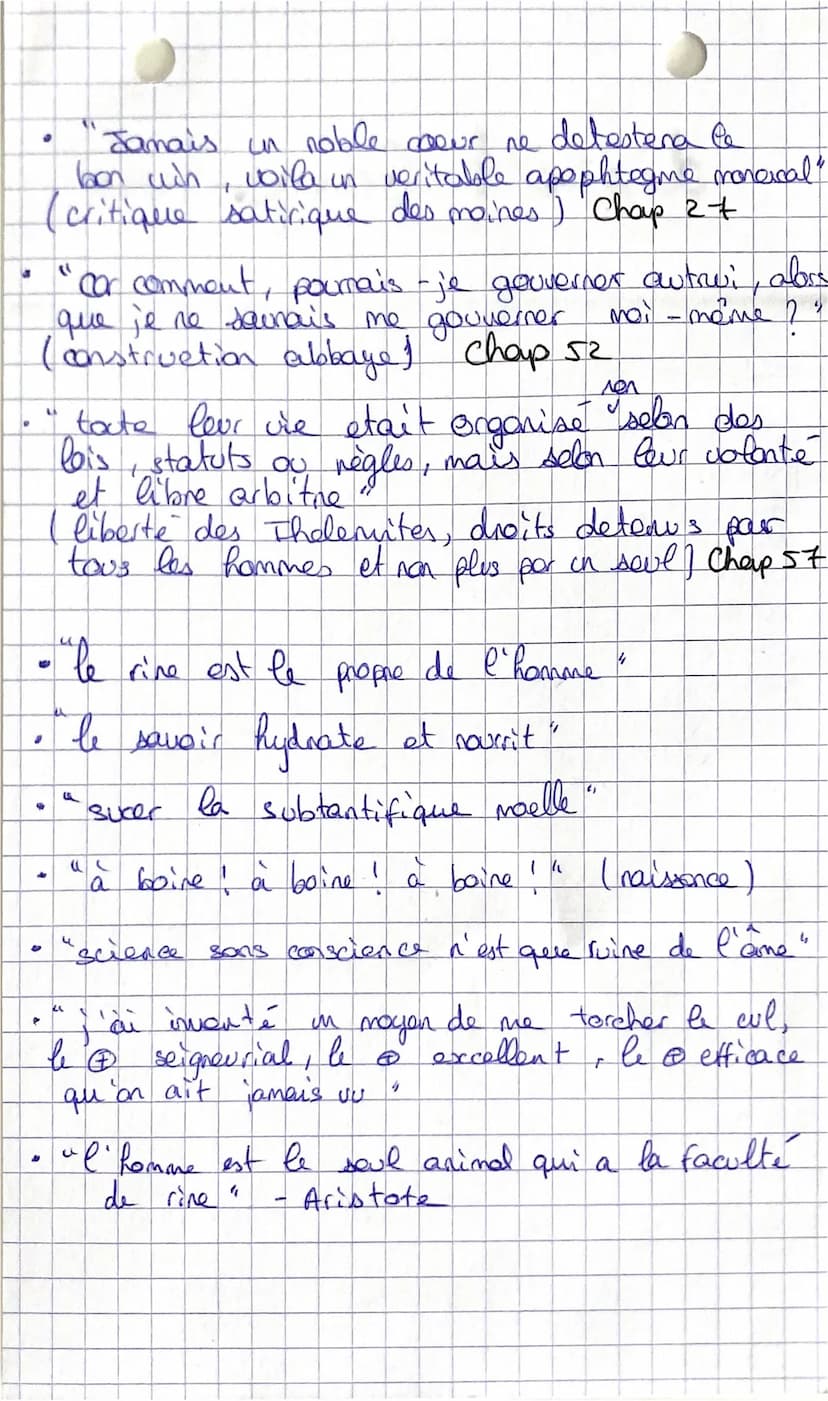 • "Jamais un noble coeur ne detestera le
bon vin, voila un veritable apophtegme monacal"
(critique satirique des moines) Chap 27
• "Car comment, pourrais-je gouverner autrui, alors
que je ne saurais me gouverner moi-même ?"
(construction abbaye) Chap 52
non
• "toute leur vie etait organisé selon des
lois, statuts ou règles, mais selon leur volonté
et libre arbitre"
(liberté des Thelemites, droits detenus par
tous les hommes et non plus par un seul) Chap 57
• "le rire est le propre de l'homme"
• "le savoir hydrate et nourrit"
• "sucer la subtantifique moelle"
• "à boire ! à boire ! à boire !" (naissance)
• "science sans conscience n'est que ruine de l'âme"
• "j'ai inventé un moyen de me torcher le cul,
le ⊕ seigneurial, le ⊕ excellent, le ⊕ efficace
qu'on ait jamais vu"
• "l'homme est le seul animal qui a la faculté
de rire" - Aristote